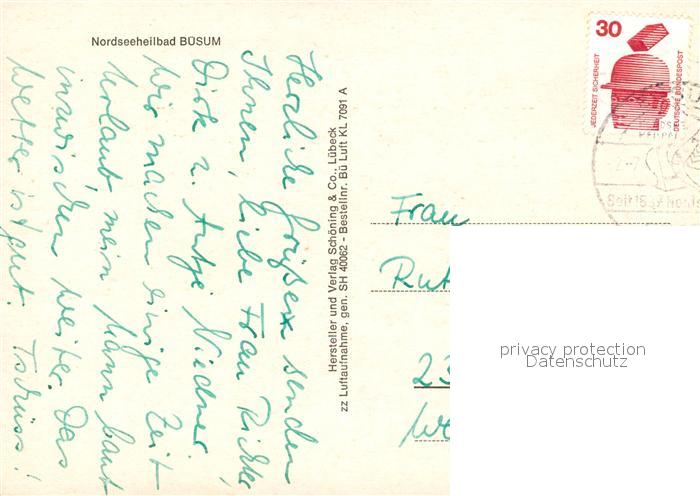 Nordseeheilbad BÜSUM
Herzliche Grüße senden
Ihnen, liebe Frau Richter,
Dirk u. Antje Niedner.
Wir machen einige Zeit
Urlaub, mein Mann baut
inzwischen weiter. Das
Wetter ist gut. Tschüss!
Hersteller und Verlag Schöning & Co., Lübeck
zz Luftaufnahme, gen. SH 40062 - Bestellnr. Bü Luft KL 7091 A
30
JEDERZEIT SICHERHEIT
DEUTSCHE BUNDESPOST
Frau
23
privacy protection
Datenschutz